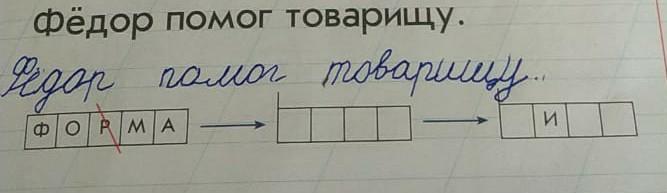 Фёдор помог товарищу.
Фёдор помог товарищу..
Ф О Р М А И